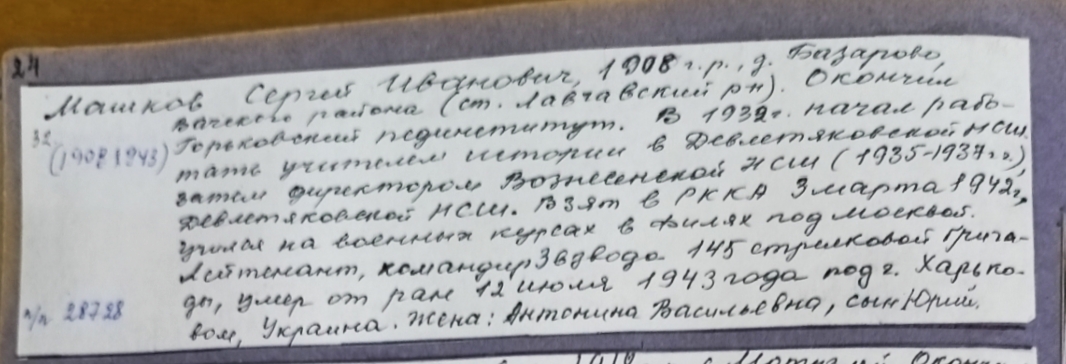 24
Машков Сергей Иванович, 1908 г.р., д. Базарово,
вачского района (ст. Лавчавский р-н). Окончил
32
(1908 1943)
Горьковский пединститут. В 1932г. начал рабо-
тать учителем истории в Девлетяковской НСШ.
затем директором Вознесенской НСШ (1935-1937г.г.),
Девлетяковской НСШ. Взят в РККА 3 марта 1942г,
учился на военных курсах в Филях под Москвой.
Лейтенант, командир 3 взвода 145 стрелковой бригa-
ды, умер от ран 12 июля 1943 года под г. Харько-
п/п 28728
вом, Украина. Жена: Антонина Васильевна, сын Юрий.